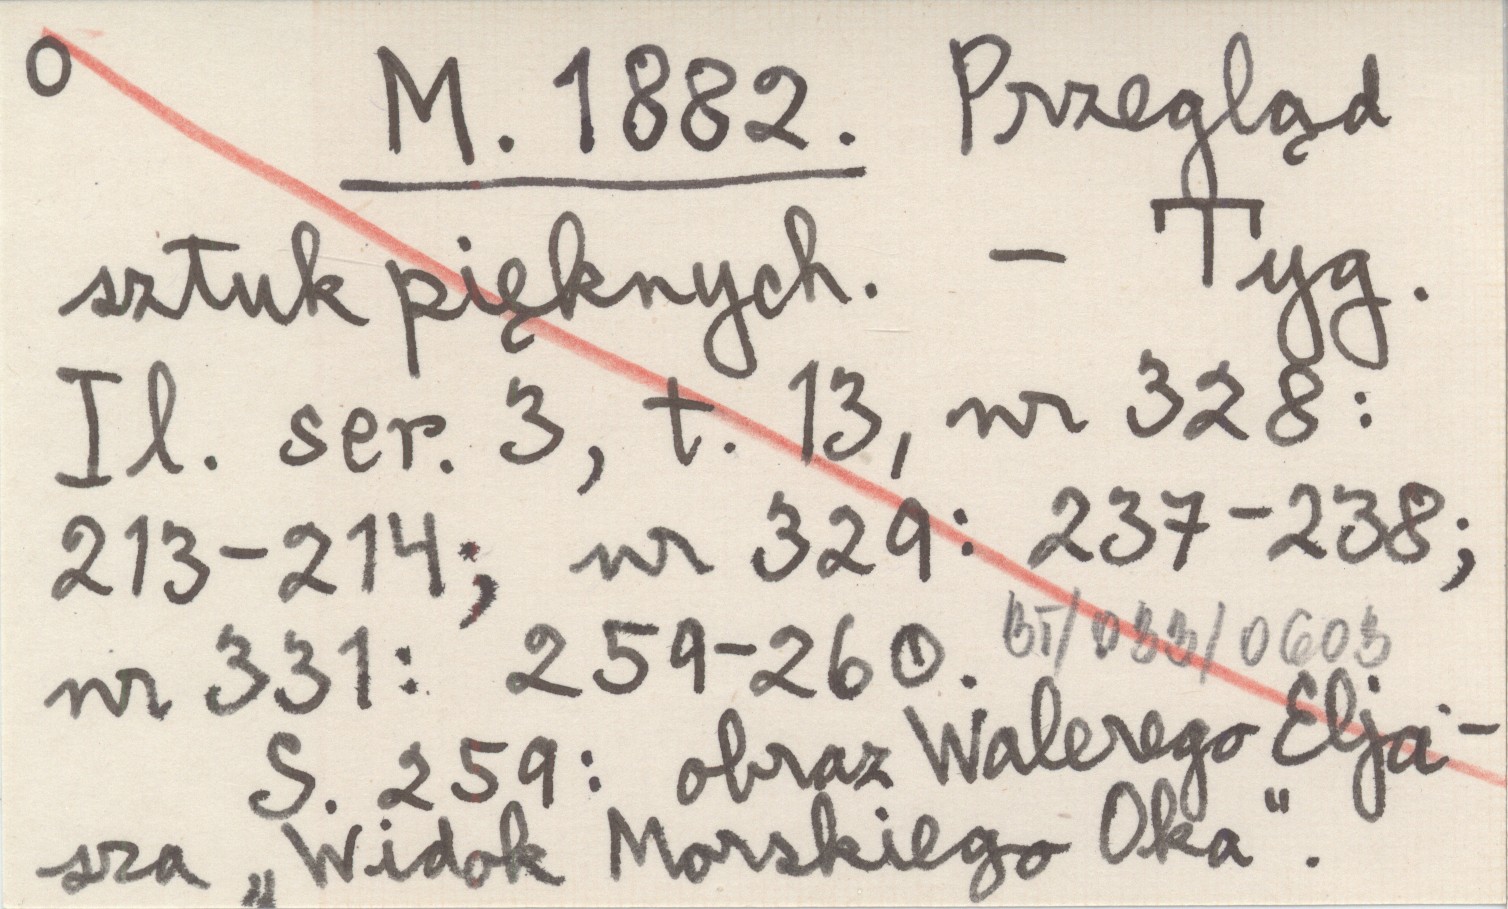 O M. 1882. Przegląd
sztuk pięknych. – Tyg.
Il. ser. 3, t. 13, nr 328:
213-214; nr 329: 237-238;
nr 331: 259-260. BT/033/0603
S. 259: obraz Walerego Elja-
sza „Widok Morskiego Oka".